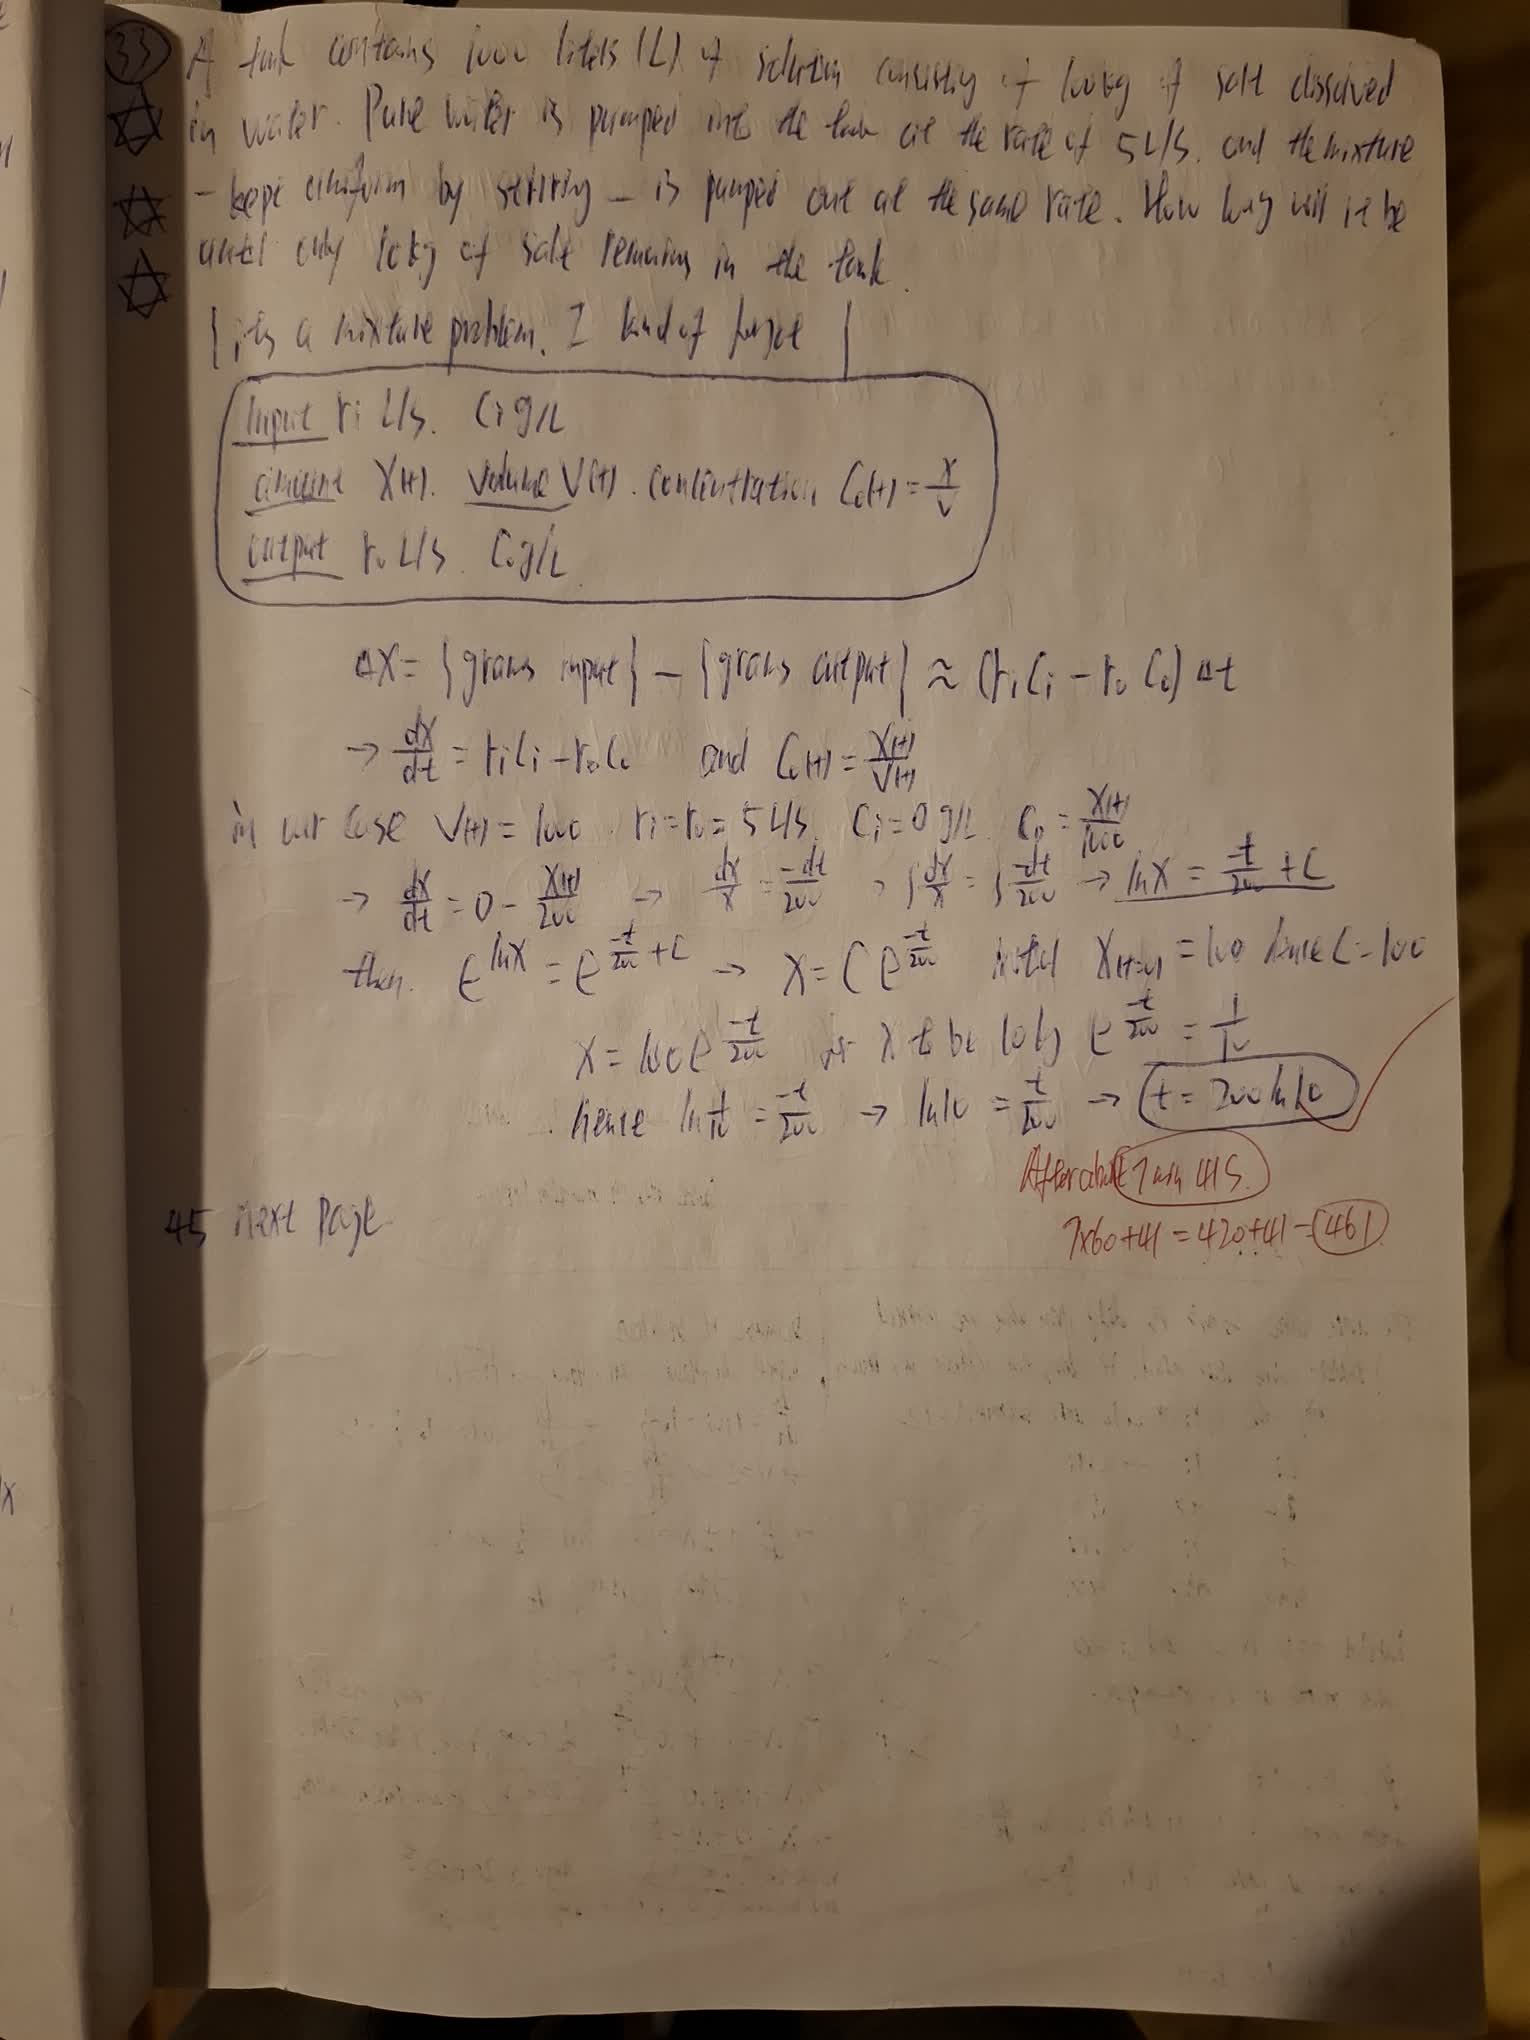 33 A tank contains 1000 liters (L) of solution consisting of 100kg of salt dissolved
in water. Pure water is pumped into the tank at the rate of 5 L/s, and the mixture
- kept uniform by stirring - is pumped out at the same rate. How long will it be
until only 10kg of salt remains in the tank.
{ its a mixture problem. I kind of forgot }
Input ri L/s. Ci g/L
amount X(t). Volume V(t). concentration Co(t) = X/V
output ro L/s. Co g/L
ΔX = {grams input} - {grams output} ≈ (riCi - roCo) Δt
→ dX/dt = riCi - roCo and Co(t) = X(t)/V(t)
in our case V(t) = 1000. ri = ro = 5 L/s. Ci = 0 g/L. Co = X(t)/1000
→ dX/dt = 0 - X(t)/200 → dX/X = -dt/200 , ∫dX/X = ∫-dt/200 → lnX = -t/200 + C
then. e^lnX = e^(-t/200 + C) → X = C e^(-t/200) initial X(t=0) = 100 hence C = 100
X = 100 e^(-t/200) for X to be 10kg e^(-t/200) = 1/10
. hence ln 1/10 = -t/200 → ln10 = t/200 → t = 200 ln10
After about 7min 41s.
7x60+41 = 420+41 = 461
45 next page